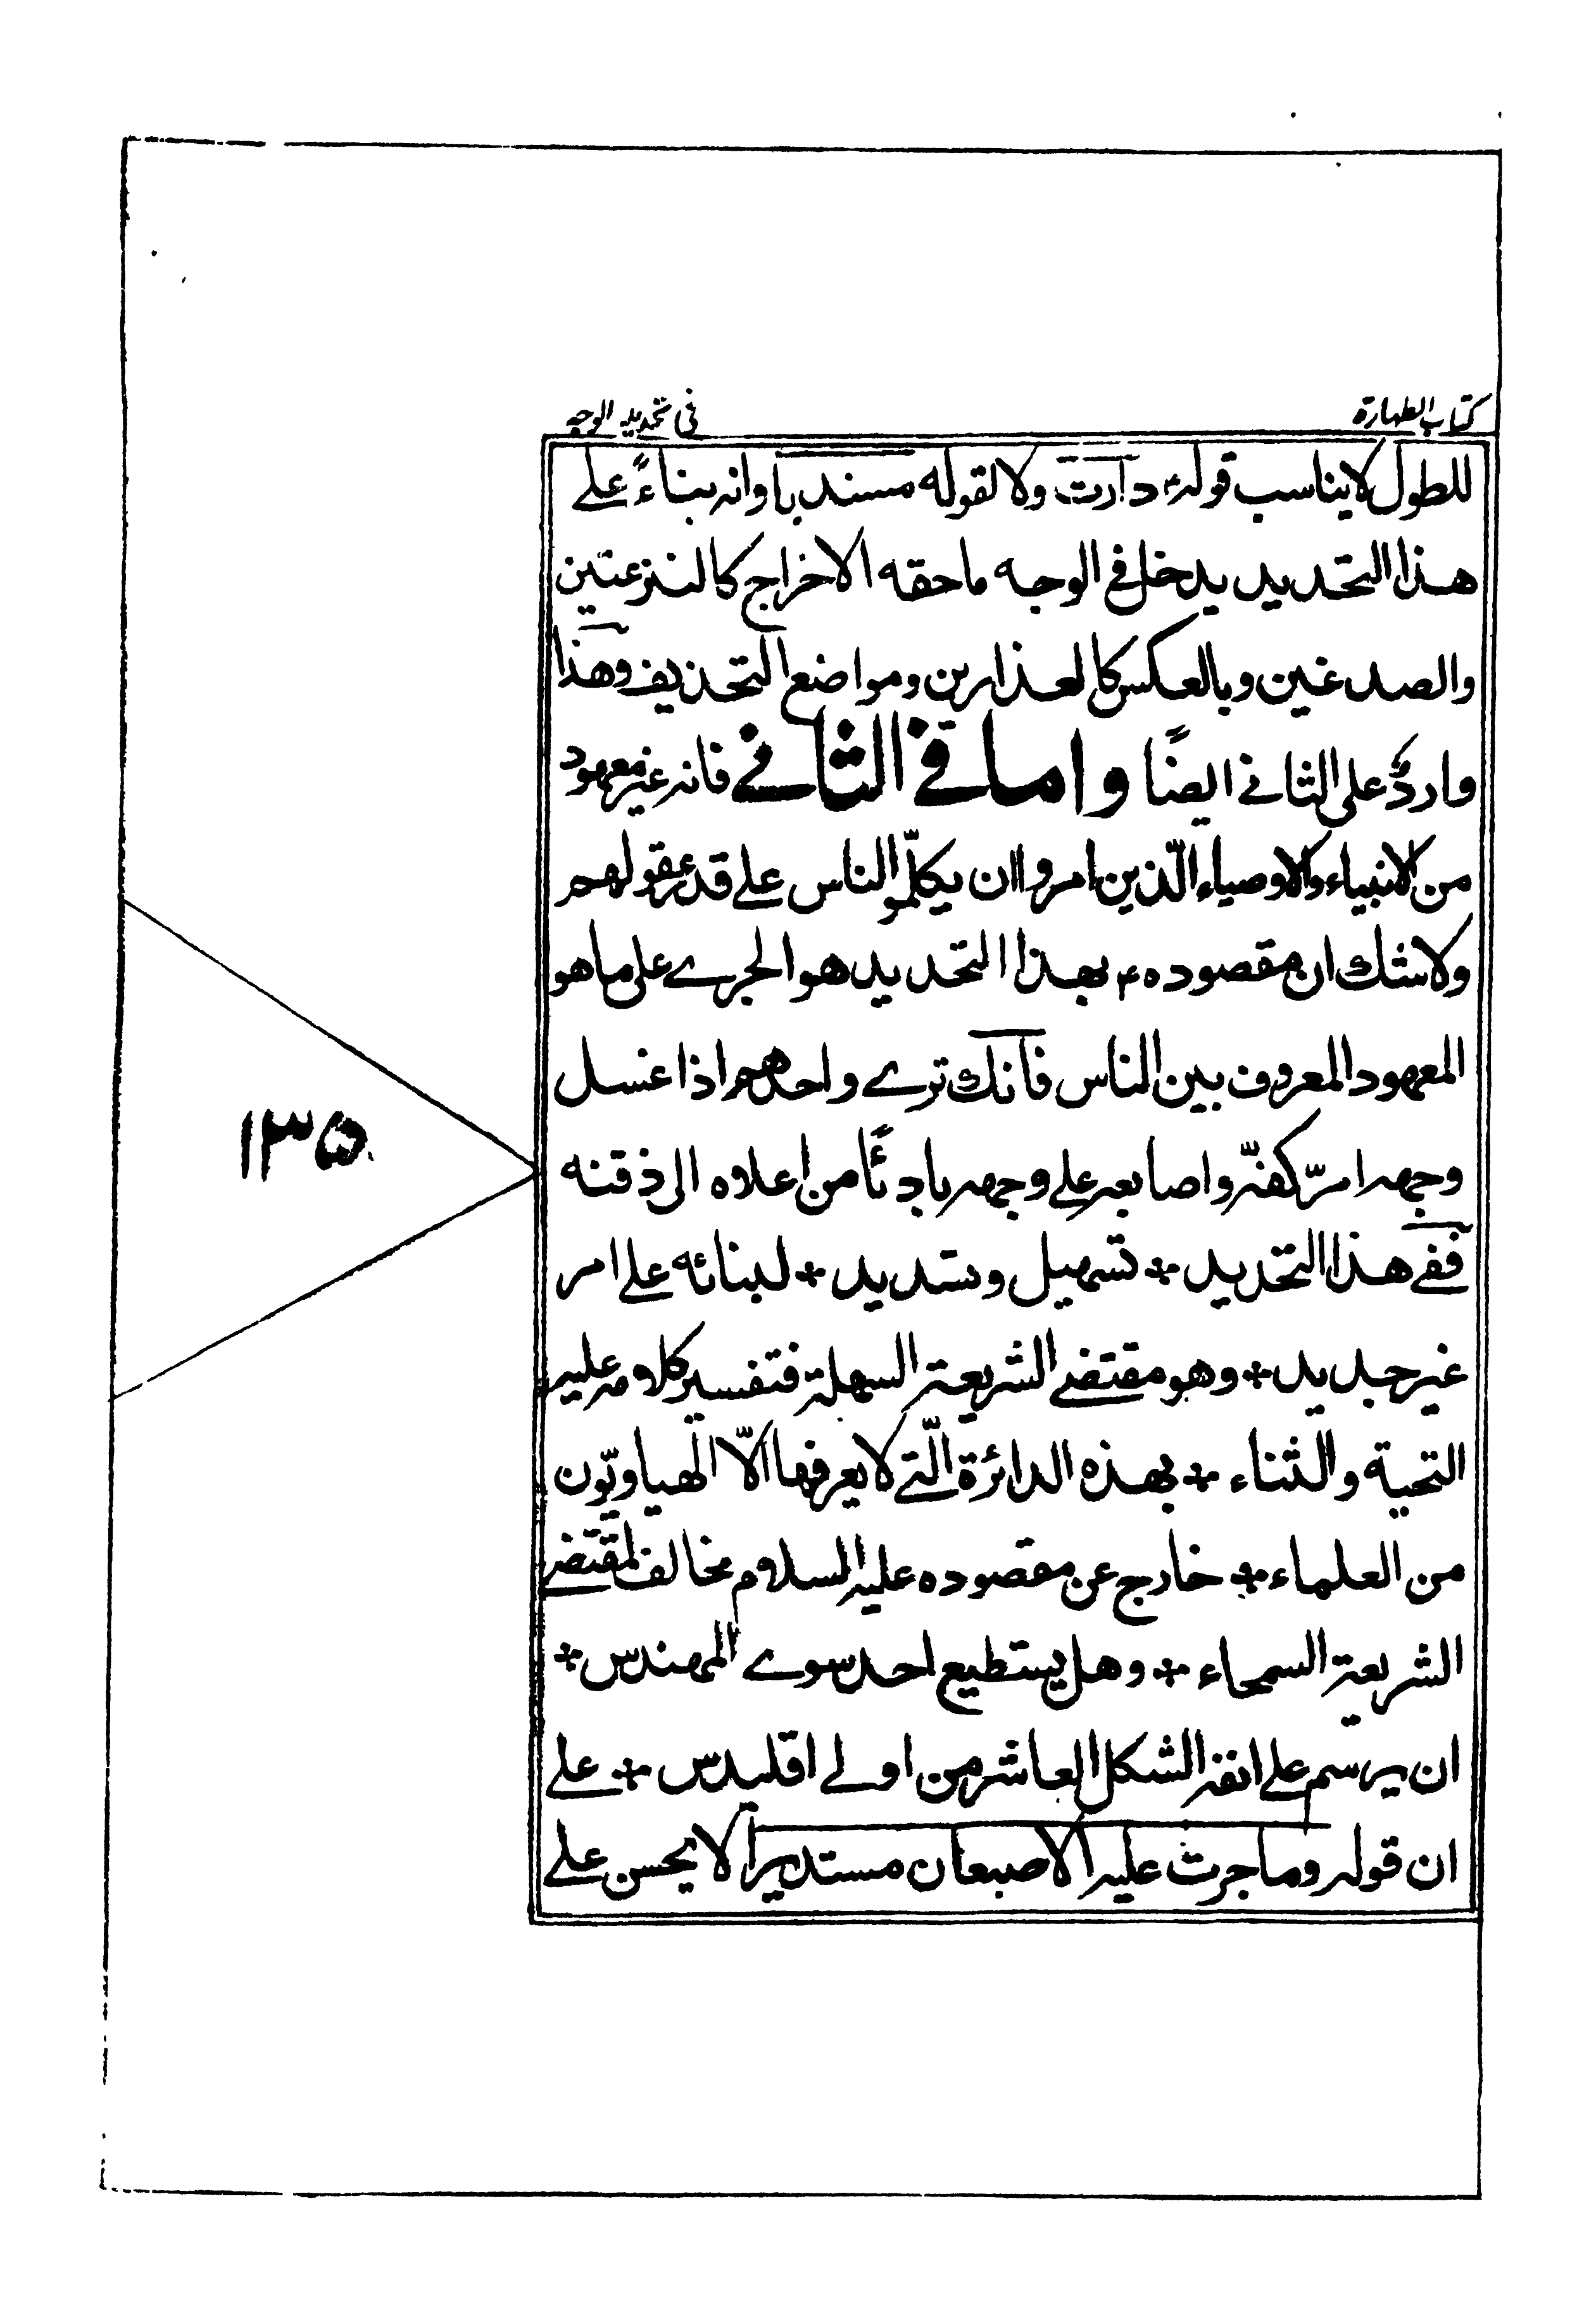 كتاب الطهارة
في تحديد الوجه
للطول لا يناسب قوله؏ دارت ولا لقوله مستديرا وانه بناءً على
هذا التحديد يدخل في الوجه ما حقه الاخراج كالنزعتين
والصدغين وبالعكس كالعذارين ومواضع التحذيف وهذا
واردٌ على الثاني ايضًا واما في الثاني فانه غير معهود
من الانبياء والاوصياء الّذين امروا ان يكلّموا الناس على قدر عقولهم
ولا شك ان مقصوده؏ بهذا التحديد هو الجري على ما هو
المعهود المعروف بين الناس فانك ترى واحدهم اذا غسل
وجهه امرّ كفّه واصابعه على وجهه بادئًا من اعلاه الى ذقنه
ففي هذا التحديد * تسهيل وتسديد * لبنائه على امر
غير جديد * وهو مقتضى الشريعة السهلة فتفسير كلامه عليه
التحية والثناء * بهذه الدائرة الّتي لا يعرفها الّا الهياويّون
من العلماء * خارج عن مقصوده عليه السلام مخالف لمقتضى
الشريعة السمحاء * وهل يستطيع احد سوى المهندس *
ان يرسم على انفه الشكل العاشر من اولى اقليدس * على
ان قوله وما جرت عليه الاصبعان مستديرا لا يحسن على
١٣۵